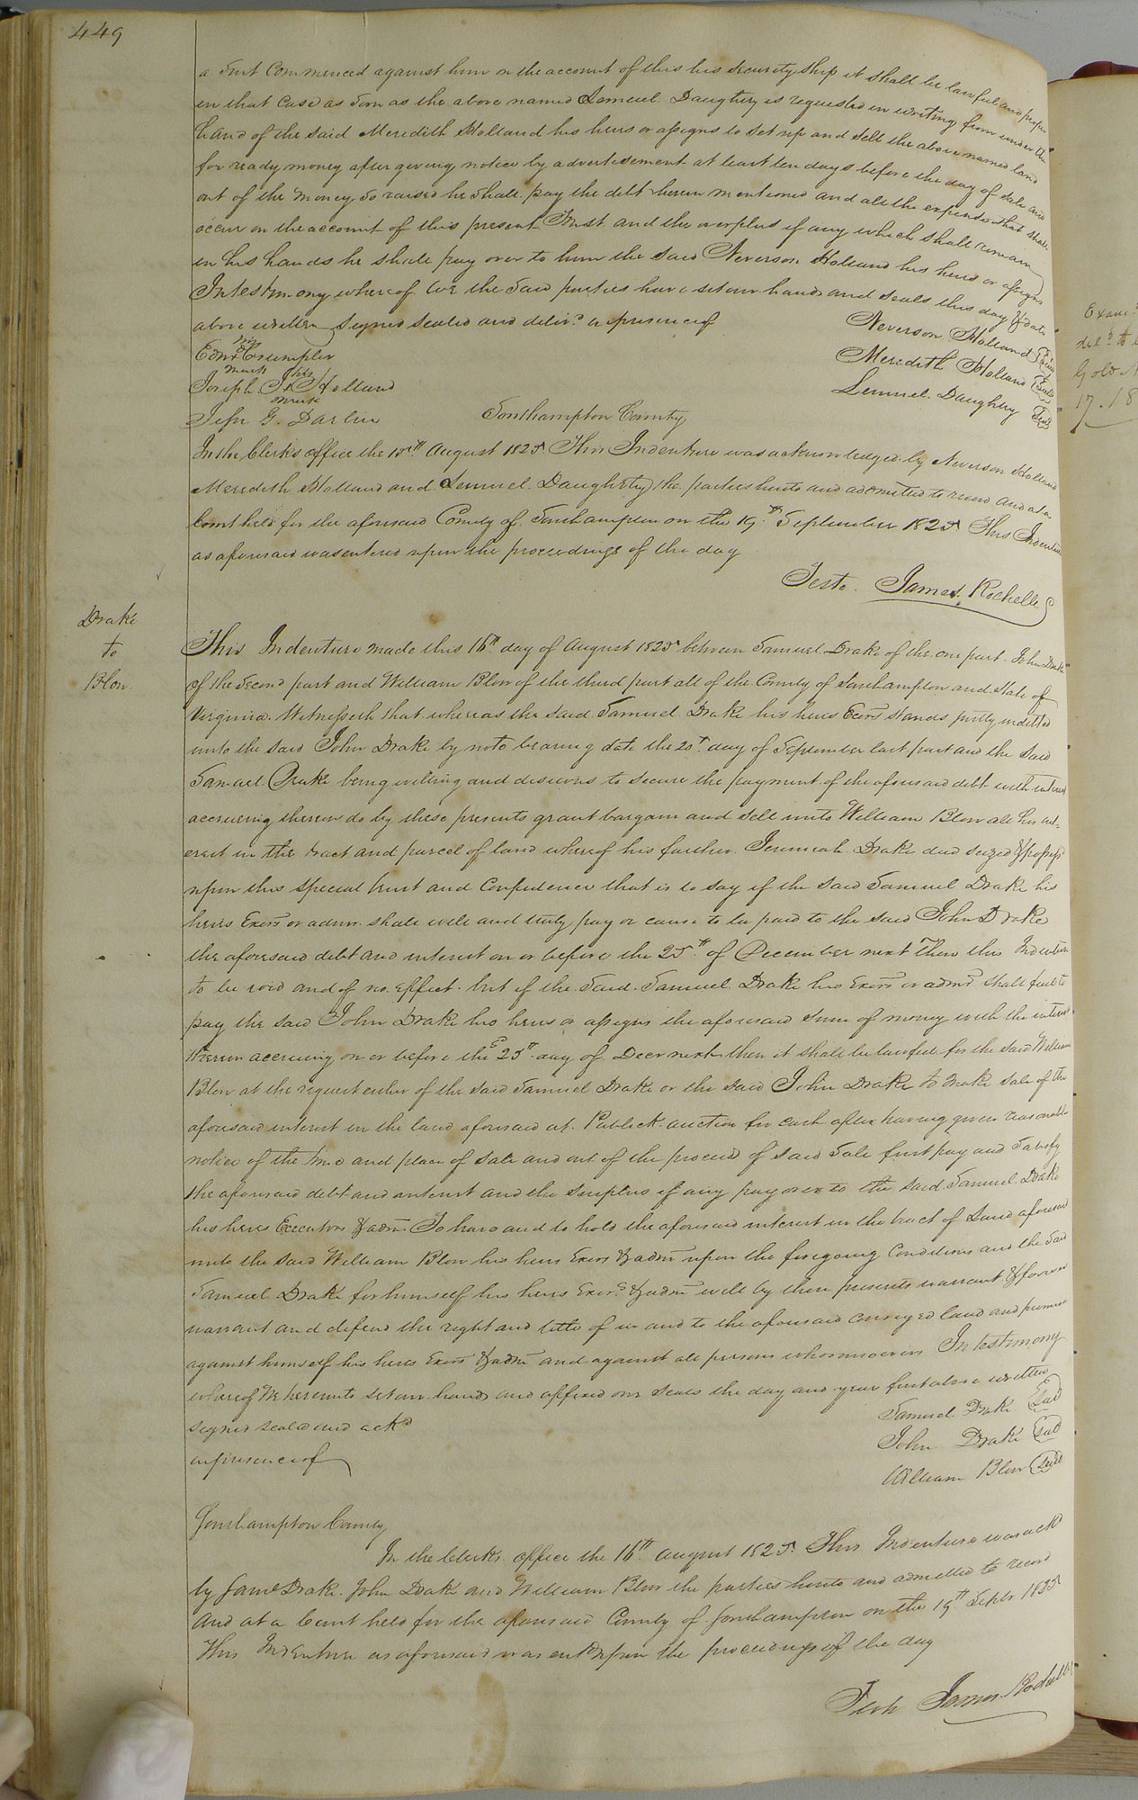 449
a Suit Commenced against him on the account of this his Security Ship it shall be lawful and proper
in that Case as Soon as the above named Lemuel Daughtry is requested in writing from under the
hand of the said Meredith Holland his heirs or assigns to set up and Sell the above named land
for ready money after giving notice by advertisement at least ten days before the day of Sale and
out of the money So raised he Shall pay the debt herein mentioned and all the expense that shall
occur on the account of this present Trust and the overplus if any which shall remain
in his hands he shall pay over to him the said Neverson Holland his heirs or assigns
In testimony whereof we the Said parties have set our hands and seals this day & date
above written Signed Sealed and delivd in presence of
Neverson Holland Seal
Edwd his Crumpler
mark
Meredith Holland Seal
Joseph his Holland
mark
Lemuel Daughtry Seal
Jesse G. Darlin
Southampton County
In the Clerks office the 15th August 1825 This Indenture was acknowledged by Neverson Holland
Meredith Holland and Lemuel Daughtry the parties hereto and admitted to record and at a
Court held for the aforesaid County of Southampton on the 19th September 1825 This Indenture
as aforesaid was entered upon the proceedings of the day
Teste. James, Rochelle
Drake
to
Blow
This Indenture made this 16th day of August 1825 between Samuel Drake of the one part John Drake
of the Second part and William Blow of the third part all of the County of Southampton and State of
Virginia. Witnesseth that whereas the said Samuel Drake his heirs Exors stands justly indebted
unto the said John Drake by note bearing date the 20th day of September last past and the said
Samuel Drake being willing and desirous to secure the payment of the aforesaid debt with interest
accrueing thereon do by these presents grant bargain and sell unto William Blow all his int-
erest in the tract and parcel of land whereof his farther Jeremiah Drake died seized & possess
upon this special trust and Confidence that is to say if the said Samuel Drake his
heirs Exors or admrs shall well and truly pay or cause to be paid to the said John Drake
the aforesaid debt and interest on or before the 25th of December next Then this Indenture
to be void and of no effect. but if the Said Samuel Drake his Exors or admrs shall fail to
pay the said John Drake his heirs or assigns the aforesaid Sum of money with the interest
thereon accrueing on or before the 25th day of Decer next then it shall be lawful for the said William
Blow at the request either of the said Samuel Drake or the said John Drake to make sale of the
aforesaid interest in the land aforesaid at Publick auction for cash after having given reasonable
notice of the time and place of Sale and out of the proceeds of said Sale first pay and Satisfy
the aforesaid debt and interest and the Surplus if any pay over to the said Samuel Drake
his heirs Executors & admr To have and to hold the aforesaid interest in the tract of Land aforesaid
unto the said William Blow his heirs Exors & admr upon the foregoing Conditions and the Said
Samuel Drake for himself his heirs Exors & admr will by these presents warrant & forever
warrant and defend the right and title of in and to the aforesaid conveyed land and premises
against himself his heirs Exors & admr and against all persons whomsoever In testimony
whereof We hereunto set our hands and affixed our Seals the day and year first above written
Signed sealed and ackd
Samuel Drake Seal
in presence of
John Drake Seal
William Blow Seal
Southampton County
In the Clerks office the 16th August 1825 This Indenture was ackd
by Saml Drake John Drake and William Blow the parties hereto and admitted to record
And at a Court held for the aforesaid County of Southampton on the 19th Septr 1825
This Indenture as aforesaid was entd upon the proceedings of the day
Teste James Rochelle